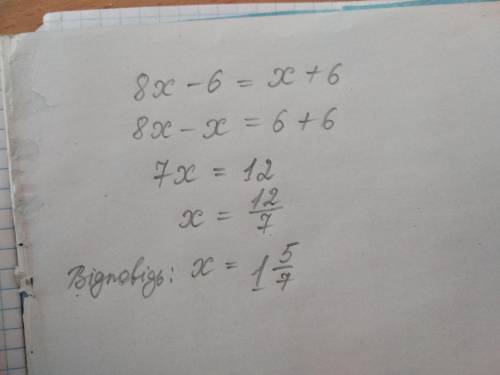 8x - 6 = x + 6
8x - x = 6 + 6
7x = 12
x = 12/7
Відповідь: x = 1 5/7